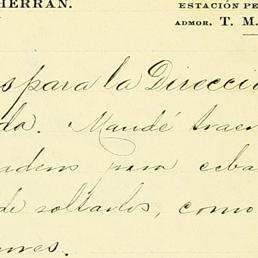 HERRAN.
ESTACIÓN PE
ADMOR. T. M.
s para la Direcci
da. Mandé traer
aders para ceba
de soltarlos, como